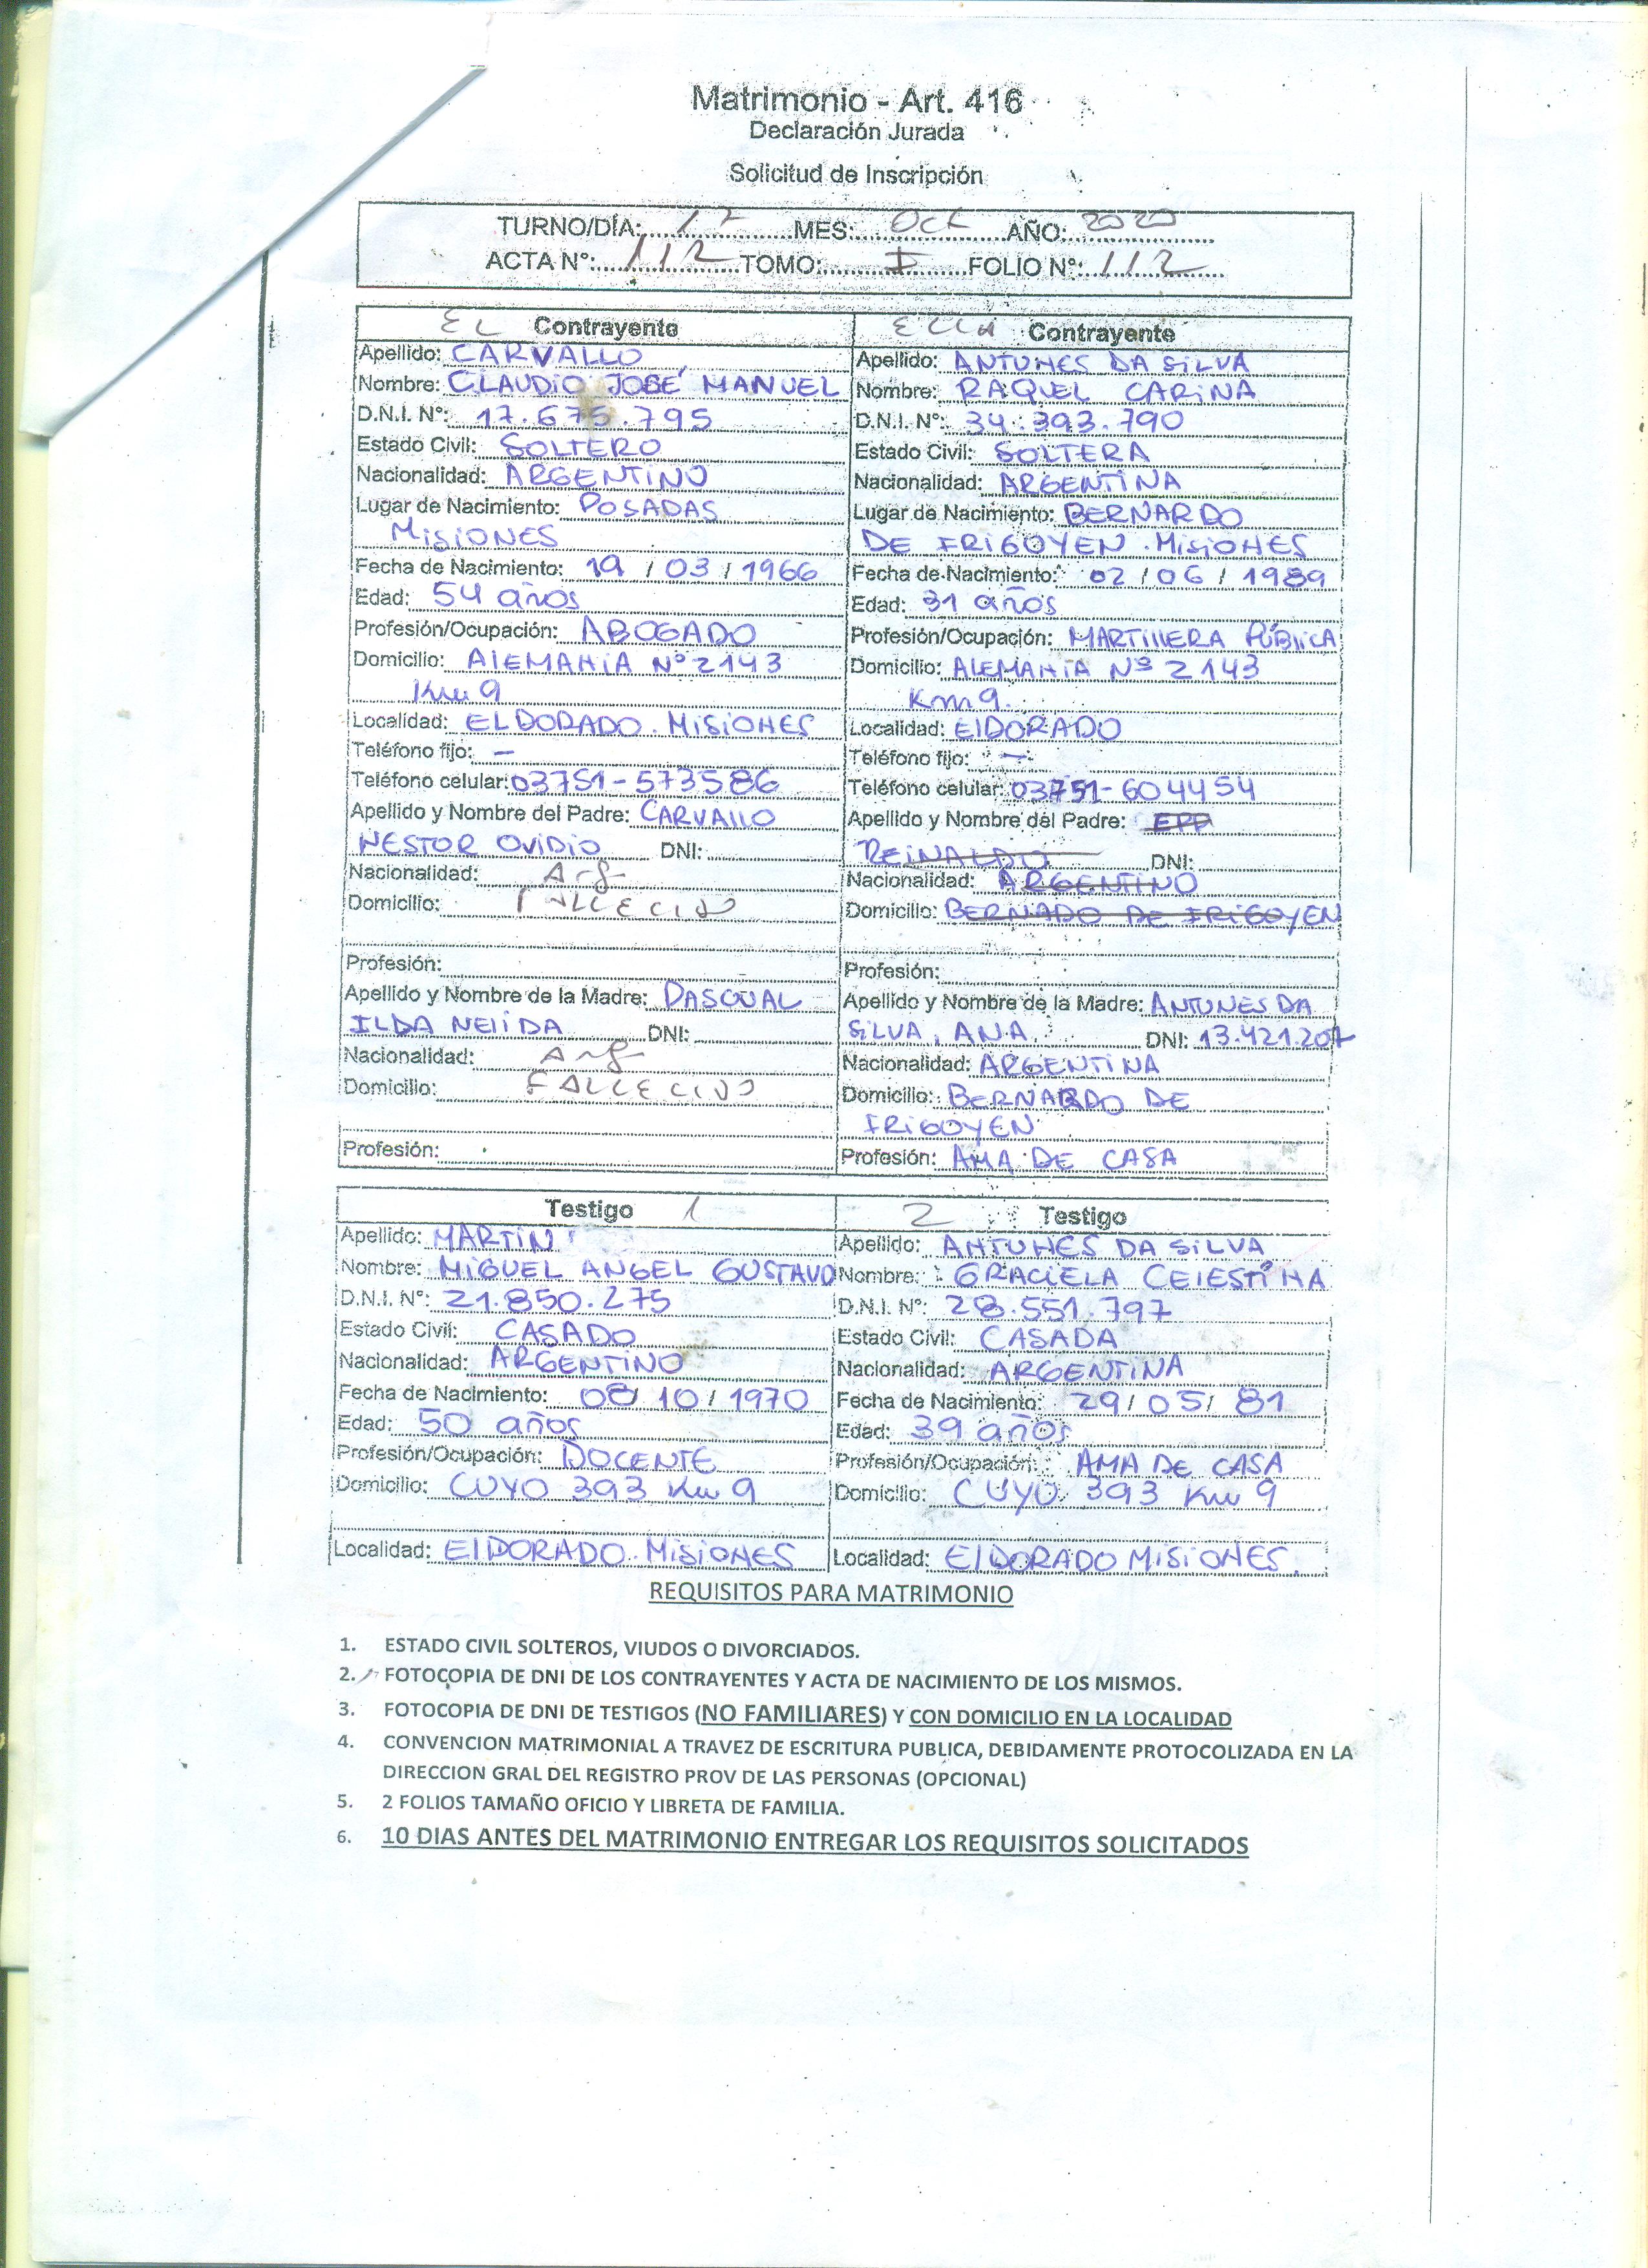 Matrimonio - Art. 416
Declaración Jurada
Solicitud de Inscripción
TURNO/DÍA: 17 MES: Oct AÑO: 2020
ACTA Nº: 112 TOMO: I FOLIO Nº: 112
EL Contrayente
Apellido: CARVALLO
Nombre: CLAUDIO JOSÉ MANUEL
D.N.I. Nº: 17.675.795
Estado Civil: SOLTERO
Nacionalidad: ARGENTINO
Lugar de Nacimiento: POSADAS
MISIONES
Fecha de Nacimiento: 19 / 03 / 1966
Edad: 54 años
Profesión/Ocupación: ABOGADO
Domicilio: ALEMANIA Nº 2143
Km 9
Localidad: ELDORADO. MISIONES
Teléfono fijo: —
Teléfono celular: 03751-573586
Apellido y Nombre del Padre: CARVALLO
NESTOR OVIDIO DNI:
Nacionalidad: Arg
Domicilio: FALLECIDO
Profesión:
Apellido y Nombre de la Madre: PASQUAL
ILDA NELIDA DNI:
Nacionalidad: Arg
Domicilio: FALLECIDO
Profesión:
ELLA Contrayente
Apellido: ANTUNES DA SILVA
Nombre: RAQUEL CARINA
D.N.I. Nº: 34.393.790
Estado Civil: SOLTERA
Nacionalidad: ARGENTINA
Lugar de Nacimiento: BERNARDO
DE IRIGOYEN. MISIONES
Fecha de Nacimiento: 02 / 06 / 1989
Edad: 31 años
Profesión/Ocupación: MARTILLERA PÚBLICA
Domicilio: ALEMANIA Nº 2143
Km 9.
Localidad: ELDORADO
Teléfono fijo: —
Teléfono celular: 03751-604454
Apellido y Nombre del Padre: EPP
REINALDO DNI:
Nacionalidad: ARGENTINO
Domicilio: BERNADO DE IRIGOYEN
Profesión:
Apellido y Nombre de la Madre: ANTUNES DA
SILVA, ANA. DNI: 13.421.207
Nacionalidad: ARGENTINA
Domicilio: BERNARDO DE
IRIGOYEN
Profesión: AMA DE CASA
Testigo 1
Apellido: MARTIN
Nombre: MIGUEL ANGEL GUSTAVO
D.N.I. Nº: 21.850.275
Estado Civil: CASADO
Nacionalidad: ARGENTINO
Fecha de Nacimiento: 08/ 10 / 1970
Edad: 50 años
Profesión/Ocupación: DOCENTE
Domicilio: CUYO 393 Km 9
Localidad: ELDORADO. MISIONES
2 Testigo
Apellido: ANTUNES DA SILVA
Nombre: GRACIELA CELESTINA
D.N.I. Nº: 28.551.797
Estado Civil: CASADA
Nacionalidad: ARGENTINA
Fecha de Nacimiento: 29/ 05/ 81
Edad: 39 años
Profesión/Ocupación: AMA DE CASA
Domicilio: CUYO 393 Km 9
Localidad: ELDORADO MISIONES.
REQUISITOS PARA MATRIMONIO
1. ESTADO CIVIL SOLTEROS, VIUDOS O DIVORCIADOS.
2. FOTOCOPIA DE DNI DE LOS CONTRAYENTES Y ACTA DE NACIMIENTO DE LOS MISMOS.
3. FOTOCOPIA DE DNI DE TESTIGOS (NO FAMILIARES) Y CON DOMICILIO EN LA LOCALIDAD
4. CONVENCION MATRIMONIAL A TRAVEZ DE ESCRITURA PUBLICA, DEBIDAMENTE PROTOCOLIZADA EN LA
DIRECCION GRAL DEL REGISTRO PROV DE LAS PERSONAS (OPCIONAL)
5. 2 FOLIOS TAMAÑO OFICIO Y LIBRETA DE FAMILIA.
6. 10 DIAS ANTES DEL MATRIMONIO ENTREGAR LOS REQUISITOS SOLICITADOS